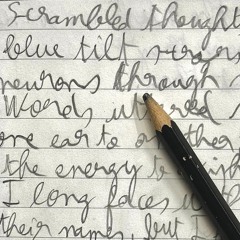 Scrambled thought
blue tilt
neurons through
Words uttered
one ear to other
the energy to
I long faces
their names, but I